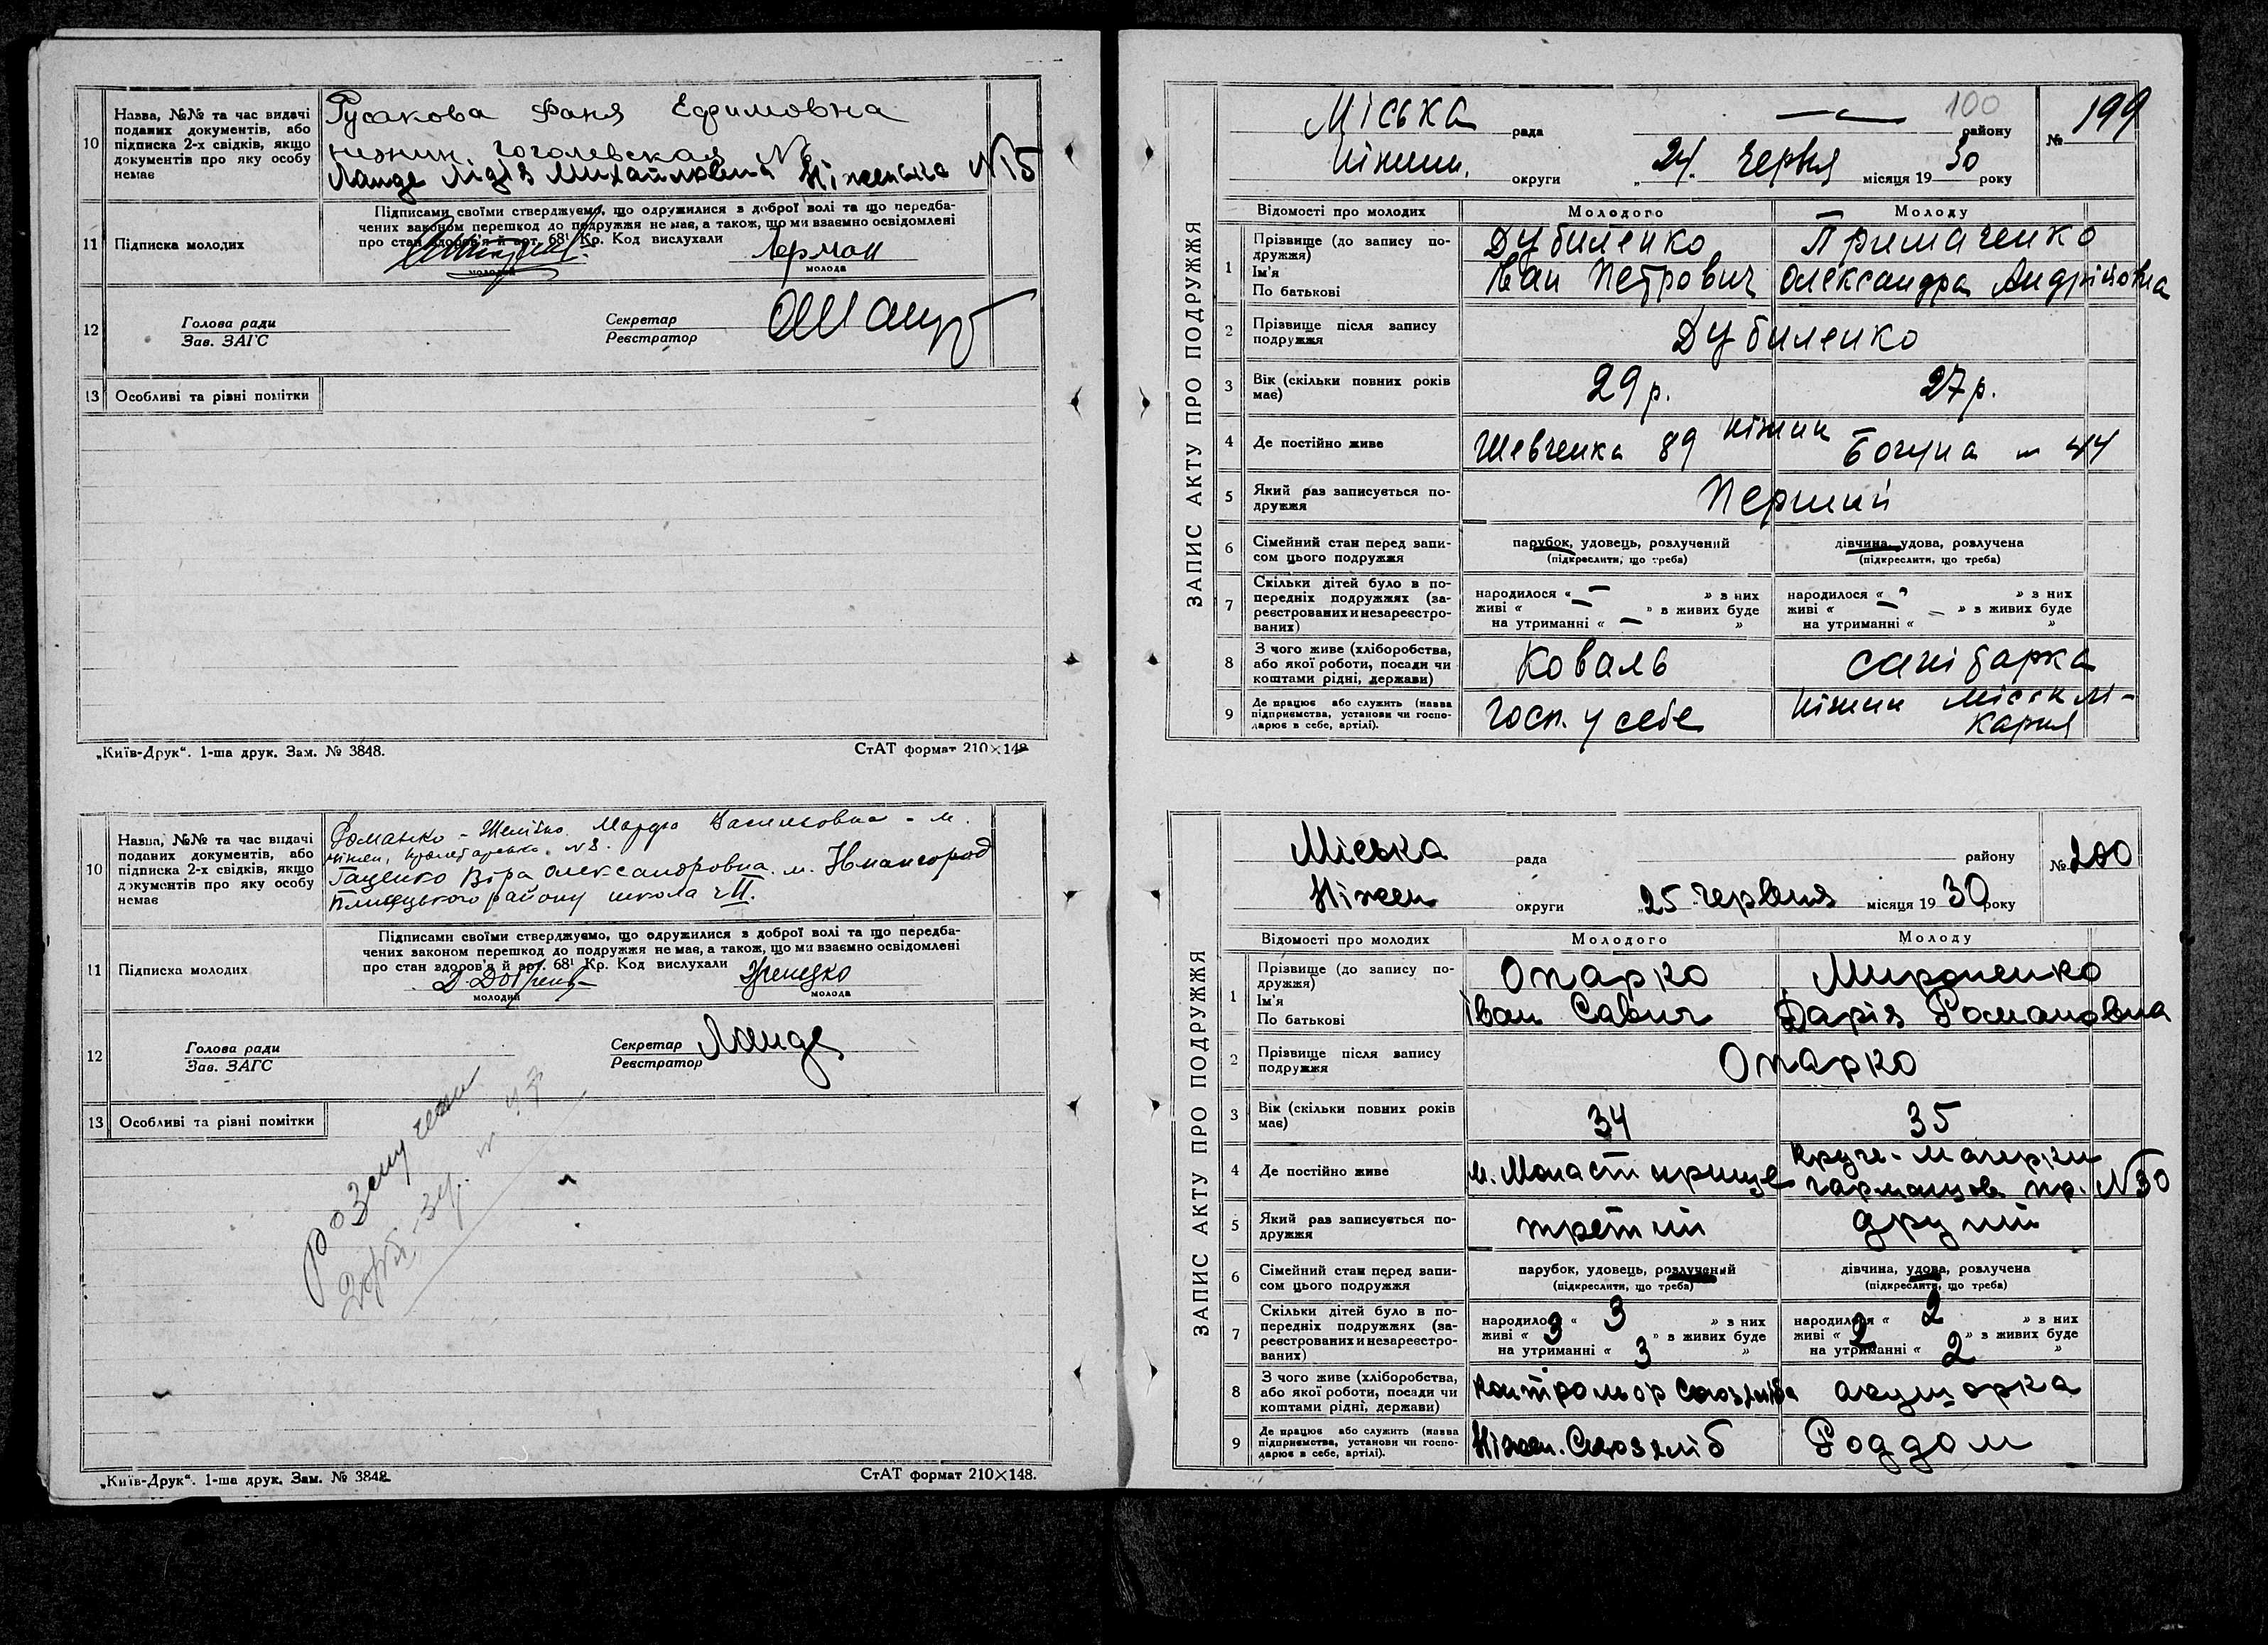 10
Назва, №№ та час видачі
поданих документів, або
підписка 2-х свідків, якщо
документів про яку особу
немає
Русакова Фаня Ефимовна
нежин. гоголевская №
Ланде Лідія Михайловна Ніженська №15
11
Підписка молодих
Підписами своїми стверджуємо, що одружилися з доброї волі та що передба-
чених законом перешкод до подружжя не має, а також, що ми взаємно освідомлені
про стан здоров'я й арт. 68¹ Кр. Код вислухали
Лерман
молодий
молода
12
Голова ради
Зав. ЗАГС
Секретар
Реєстратор
13
Особливі та рівні помітки
„Київ-Друк“. 1-ша друк. Зам. № 3848.
СтАТ формат 210×148
10
Назва, №№ та час видачі
поданих документів, або
підписка 2-х свідків, якщо
документів про яку особу
немає
Романко - Марфа Василовна - м.
№ 8.
Гаценко Віра Олександровна. м.
району школа
11
Підписка молодих
Підписами своїми стверджуємо, що одружилися з доброї волі та що передба-
чених законом перешкод до подружжя не має, а також, що ми взаємно освідомлені
про стан здоров'я й арт. 68¹ Кр. Код вислухали
молодий
молода
12
Голова ради
Зав. ЗАГС
Секретар
Реєстратор
Ланде
13
Особливі та рівні помітки
„Київ-Друк“. 1-ша друк. Зам. № 3848.
СтАТ формат 210×148.
ЗАПИС АКТУ ПРО ПОДРУЖЖЯ
100
Міська рада — району
№ 199
Ніжин. округи „ 24. червня місяця 19 30 року
Відомості про молодих
Молодого
Молоду
1
Прізвище (до запису по-
дружжя)
Ім'я
По батькові
Дубиленко
Іван Петрович
Примаченко
Олександра Андріїовна
2
Прізвище після запису
подружжя
Дубиленко
3
Вік (скільки повних років
має)
29 р.
27 р.
4
Де постійно живе
Шевченка 89 Ніжин Богуна - 44
5
Який раз записується по-
дружжя
Перший
6
Сімейний стан перед запи-
сом цього подружжя
парубок, удовець, розлучений
(підкреслити, що треба)
дівчина, удова, розлучена
(підкреслити, що треба)
7
Скільки дітей було в по-
передніх подружжях (за-
реєстрованих и незареєстро-
ваних)
народилося « — » з них
живі « — » з живих буде
на утриманні « — »
народилося « — » з них
живі « — » з живих буде
на утриманні « — »
8
З чого живе (хліборобства,
або якої роботи, посади чи
коштами рідні, держави)
Коваль
санітарка
9
Де працює або служить (назва
підприємства, установи чи госпо-
дарює в себе, артілі).
Госп. у себе
Ніжин Міськ лі-
карня
ЗАПИС АКТУ ПРО ПОДРУЖЖЯ
Міська рада району
№ 200
Ніжен округи „ 25 червня місяця 19 30 року
Відомості про молодих
Молодого
Молоду
1
Прізвище (до запису по-
дружжя)
Ім'я
По батькові
Опарко
Іван Савич
Мироненко
Дарія Романовна
2
Прізвище після запису
подружжя
Опарко
3
Вік (скільки повних років
має)
34
35
4
Де постійно живе
м. Монастирище
№ 30
5
Який раз записується по-
дружжя
третий
другий
6
Сімейний стан перед запи-
сом цього подружжя
парубок, удовець, розлучений
(підкреслити, що треба)
дівчина, удова, розлучена
(підкреслити, що треба)
7
Скільки дітей було в по-
передніх подружжях (за-
реєстрованих и незареєстро-
ваних)
народилося « 3 » з них
живі « 3 » з живих буде
на утриманні « 3 »
народилося « 2 » з них
живі « 2 » з живих буде
на утриманні « 2 »
8
З чого живе (хліборобства,
або якої роботи, посади чи
коштами рідні, держави)
контрольор Союзхліба
акушорка
9
Де працює або служить (назва
підприємства, установи чи госпо-
дарює в себе, артілі).
Ніжен. Союзхліб
Роддом